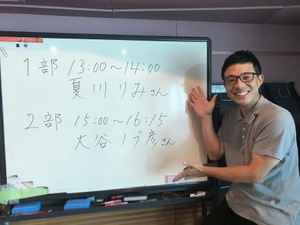 1部 13:00〜14:00
夏川りみさん
2部 15:00〜16:15
大谷ノブ彦さん